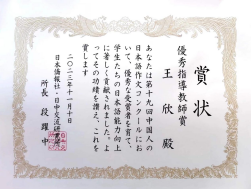 賞状
優秀指導教師賞
王欣殿
あなたは第十九回中国人の
日本語作文コンクールにお
いて、優秀な受賞者を育て
学生たちの日本語能力向上
に著しく貢献されました。よ
ってその功績を讃え、これを
賞します
二〇二三年十一月十日
日本僑報社・日中交流研究所
所長 段躍中